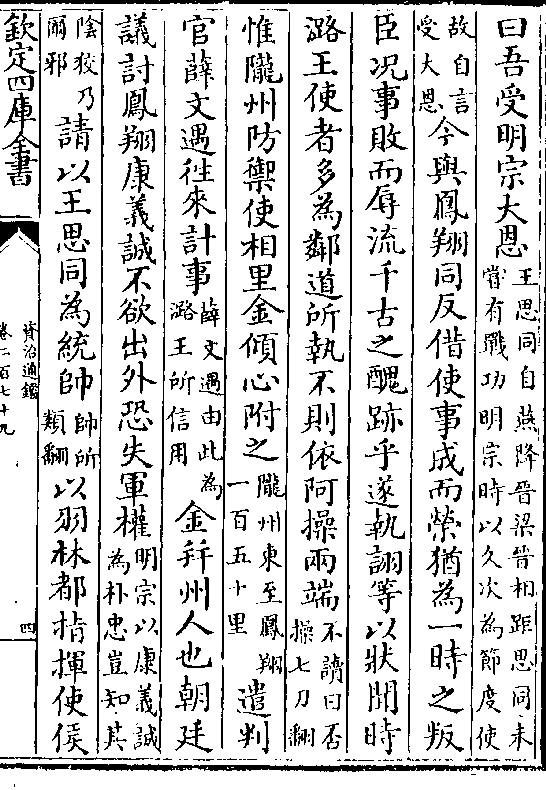 曰吾受明宗大恩王思同自燕降晉梁晉相距思同未嘗有戰功明宗時以久次為節度使
故自言受大恩今與鳳翔同反借使事成而榮猶為一時之叛
臣况事敗而辱流千古之醜跡乎遂執詡等以狀聞時
潞王使者多為鄰道所執不則依阿操兩端不讀曰否操七刀翻
惟隴州防禦使相里金傾心附之隴州東至鳳翔一百五十里遣判
官薛文遇徃來計事薛文遇由此為潞王所信用金幷州人也朝廷
議討鳳翔康義誠不欲出外恐失軍權明宗以康義誠為朴忠豈知其
陰狡乃爾邪請以王思同為統帥帥所類翻以羽林都指揮使侯
欽定四庫全書
資治通鑑
卷二百七十九
四